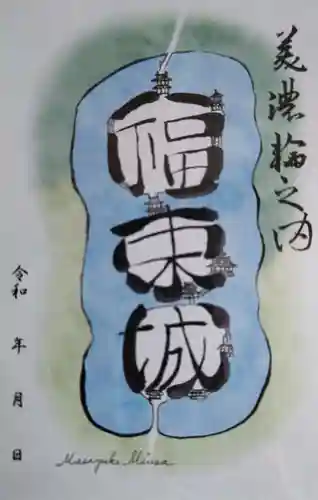 美濃輪之内
福束城
令和　年　月　日
Masayuki Miura